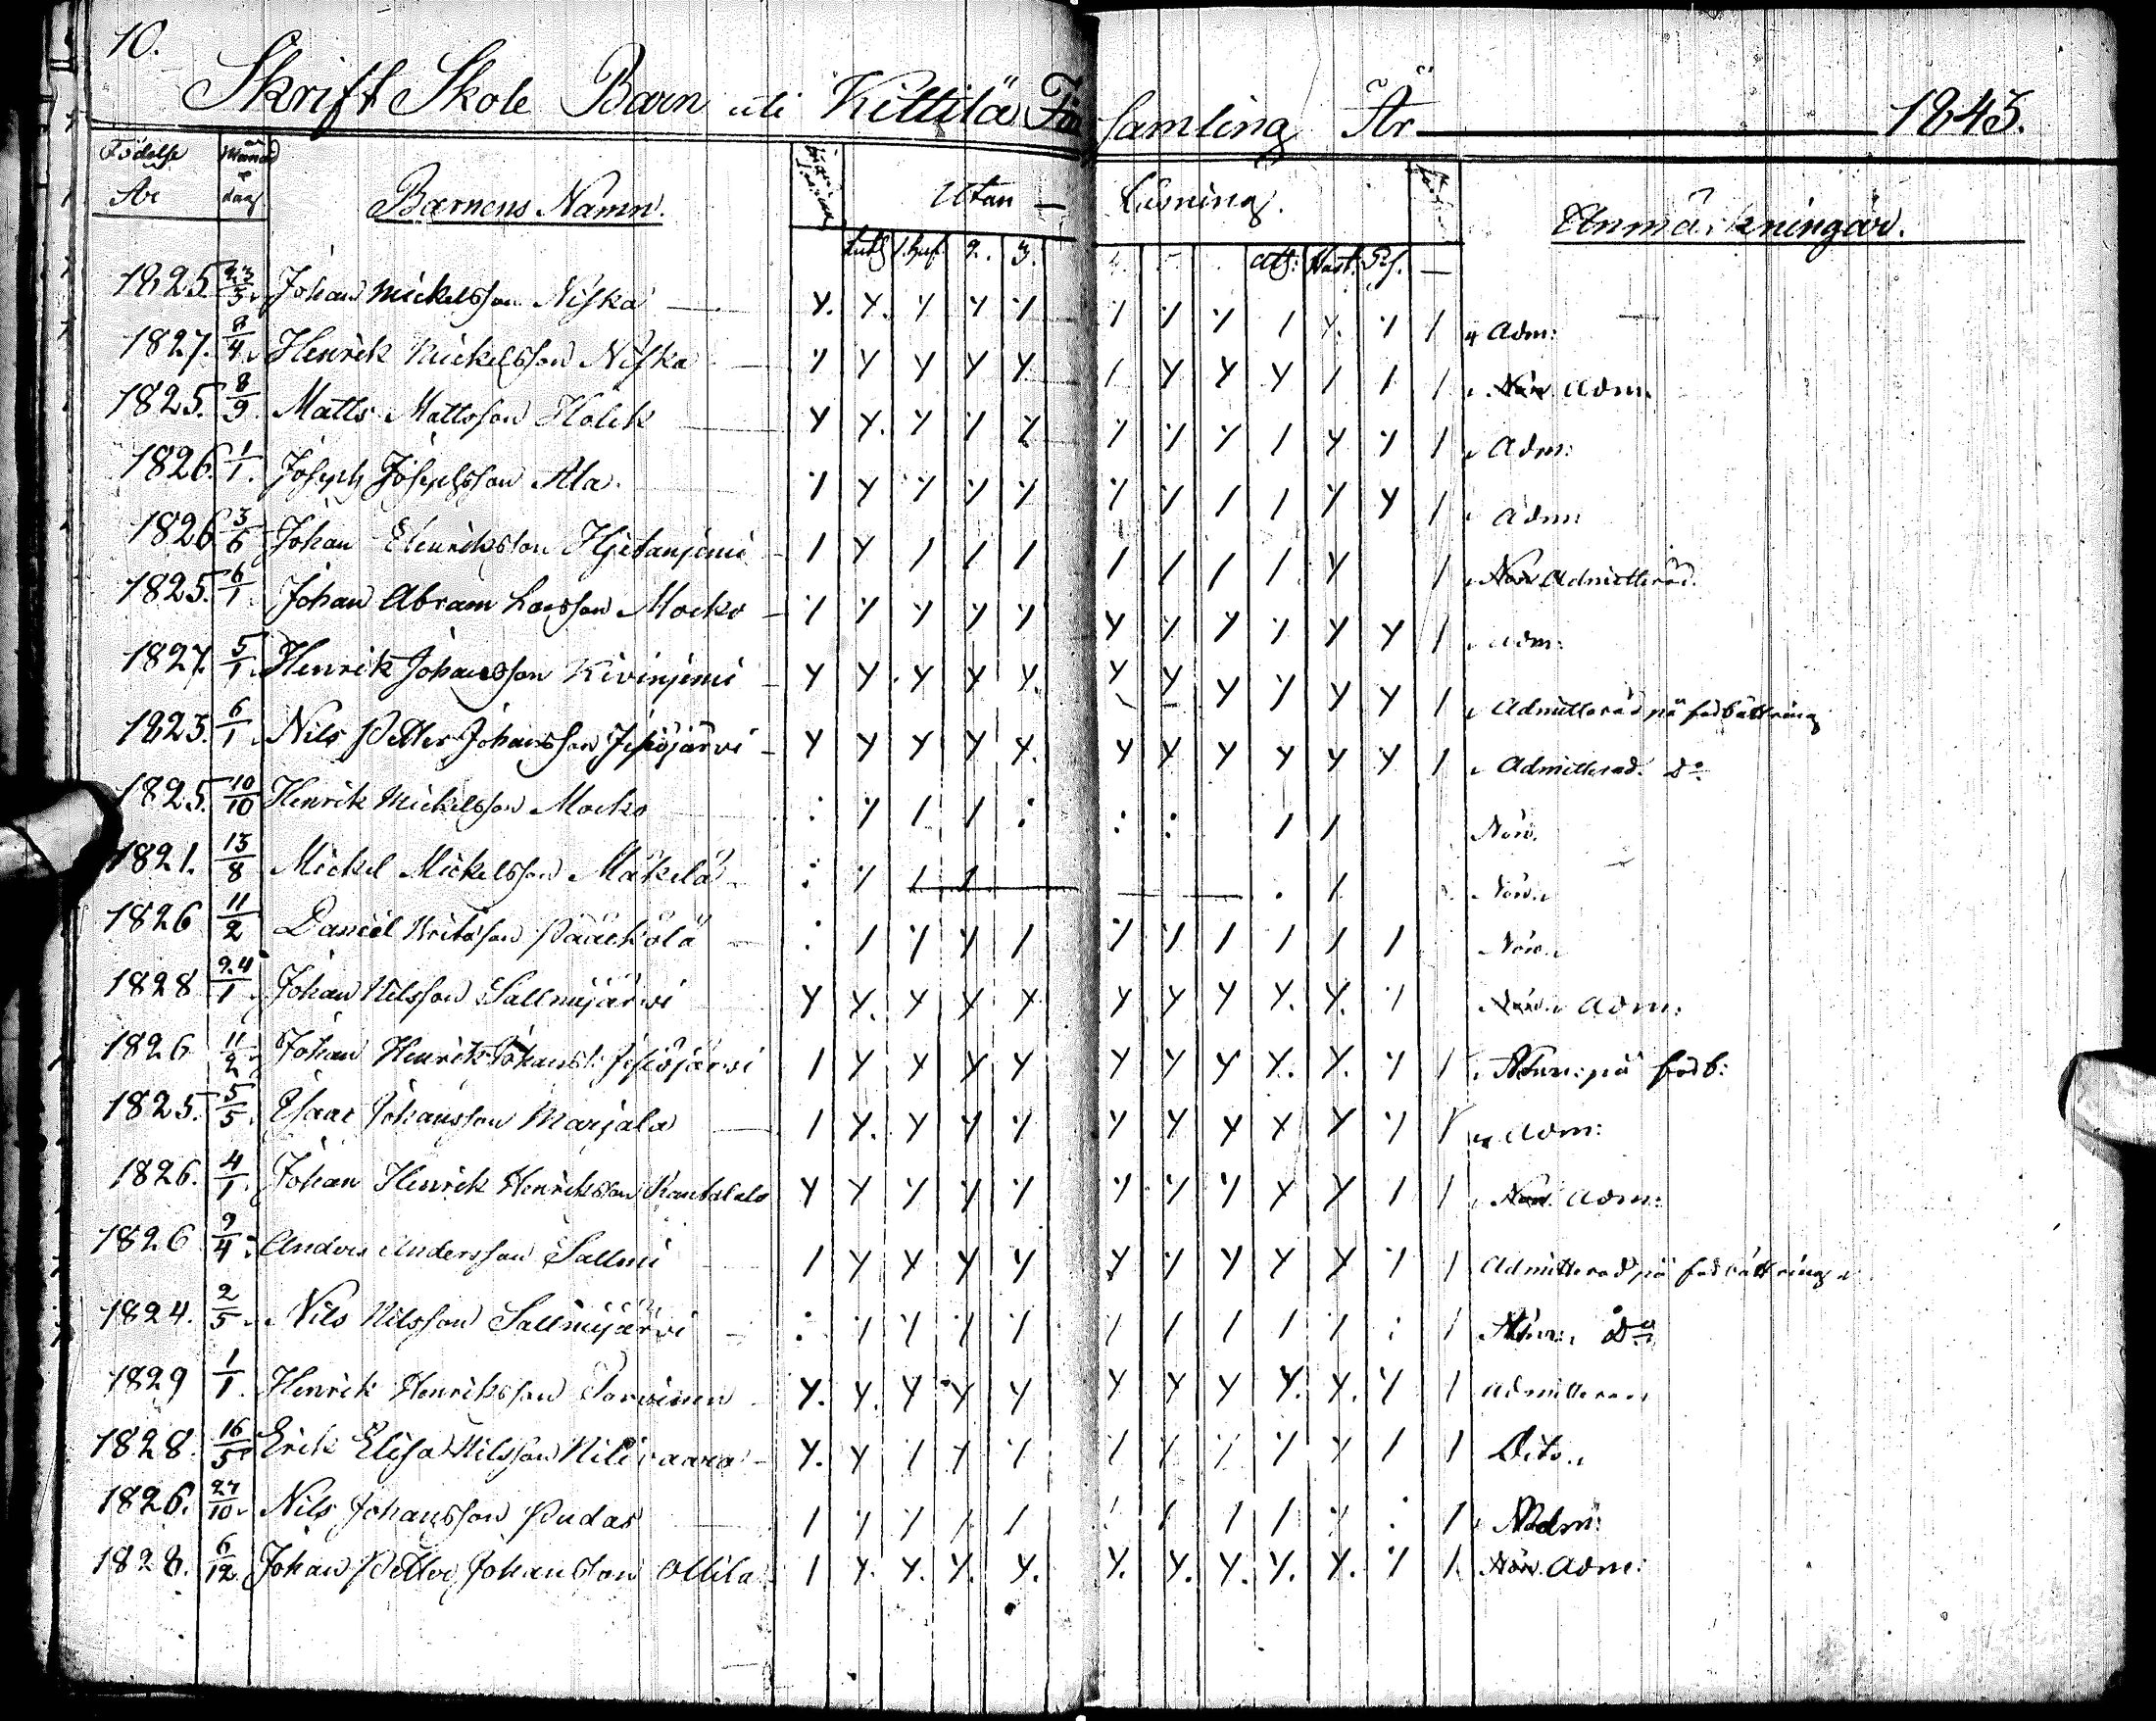 10.
Skrift Skole Barn uti Kittilä Församling År 1843.
Födelse År Månad Dag Barnens Namn. Utan – Läsning. Anmärkningar.
1. huf. 2. 3. Ath: Hust. Sp.
1825 23/3 Johan Mickelsson Niska Adm:
1827. 8/4 Henrik Mickelsson Niska Adm.
1825. 8/9 Matts Mattsson Holck Adm:
1826. 1/1. Joseph Josephsson Ala Adm:
1826 3/6 Johan Henriksson Hjetanjemi Admitterad.
1825. 6/1. Johan Abram Larsson Mocko Adm:
1827. 5/1. Henrik Johansson Kivinjemi Admitterad på förbättring
1823. 6/1. Nils Petter Johansson Jesiöjärvi Admitterad. Do
1825. 10/10 Henrik Mickelsson Mocko Növ.
1821. 13/8 Mickel Mickelsson Mäkelä Növ.
1826 11/2 Daniel Britasson Pääckölä Növ.
1828 24/1 Johan Nilsson Sallmijärvi Adm:
1826 11/2 Johan Henrik Johanss: Jesiöjärvi Adm: på förb:
1825. 5/5. Isaac Johansson Marjala Adm:
1826. 4/1. Johan Henrik Henriksson Rantatalo Adm:
1826 9/4. Anders Andersson Sallmi Admitterad på förbättring
1824. 2/5 Nils Nilsson Sallmijärvi Adm: Do
1829 1/1. Henrik Henriksson Torvinen Admitterad
1828. 16/5 Erik Elisa Nilsson Nilivaara Dito.
1826. 27/10 Nils Johansson Pudas Adm:
1828. 6/12 Johan Petter Johansson Ollila Adm: